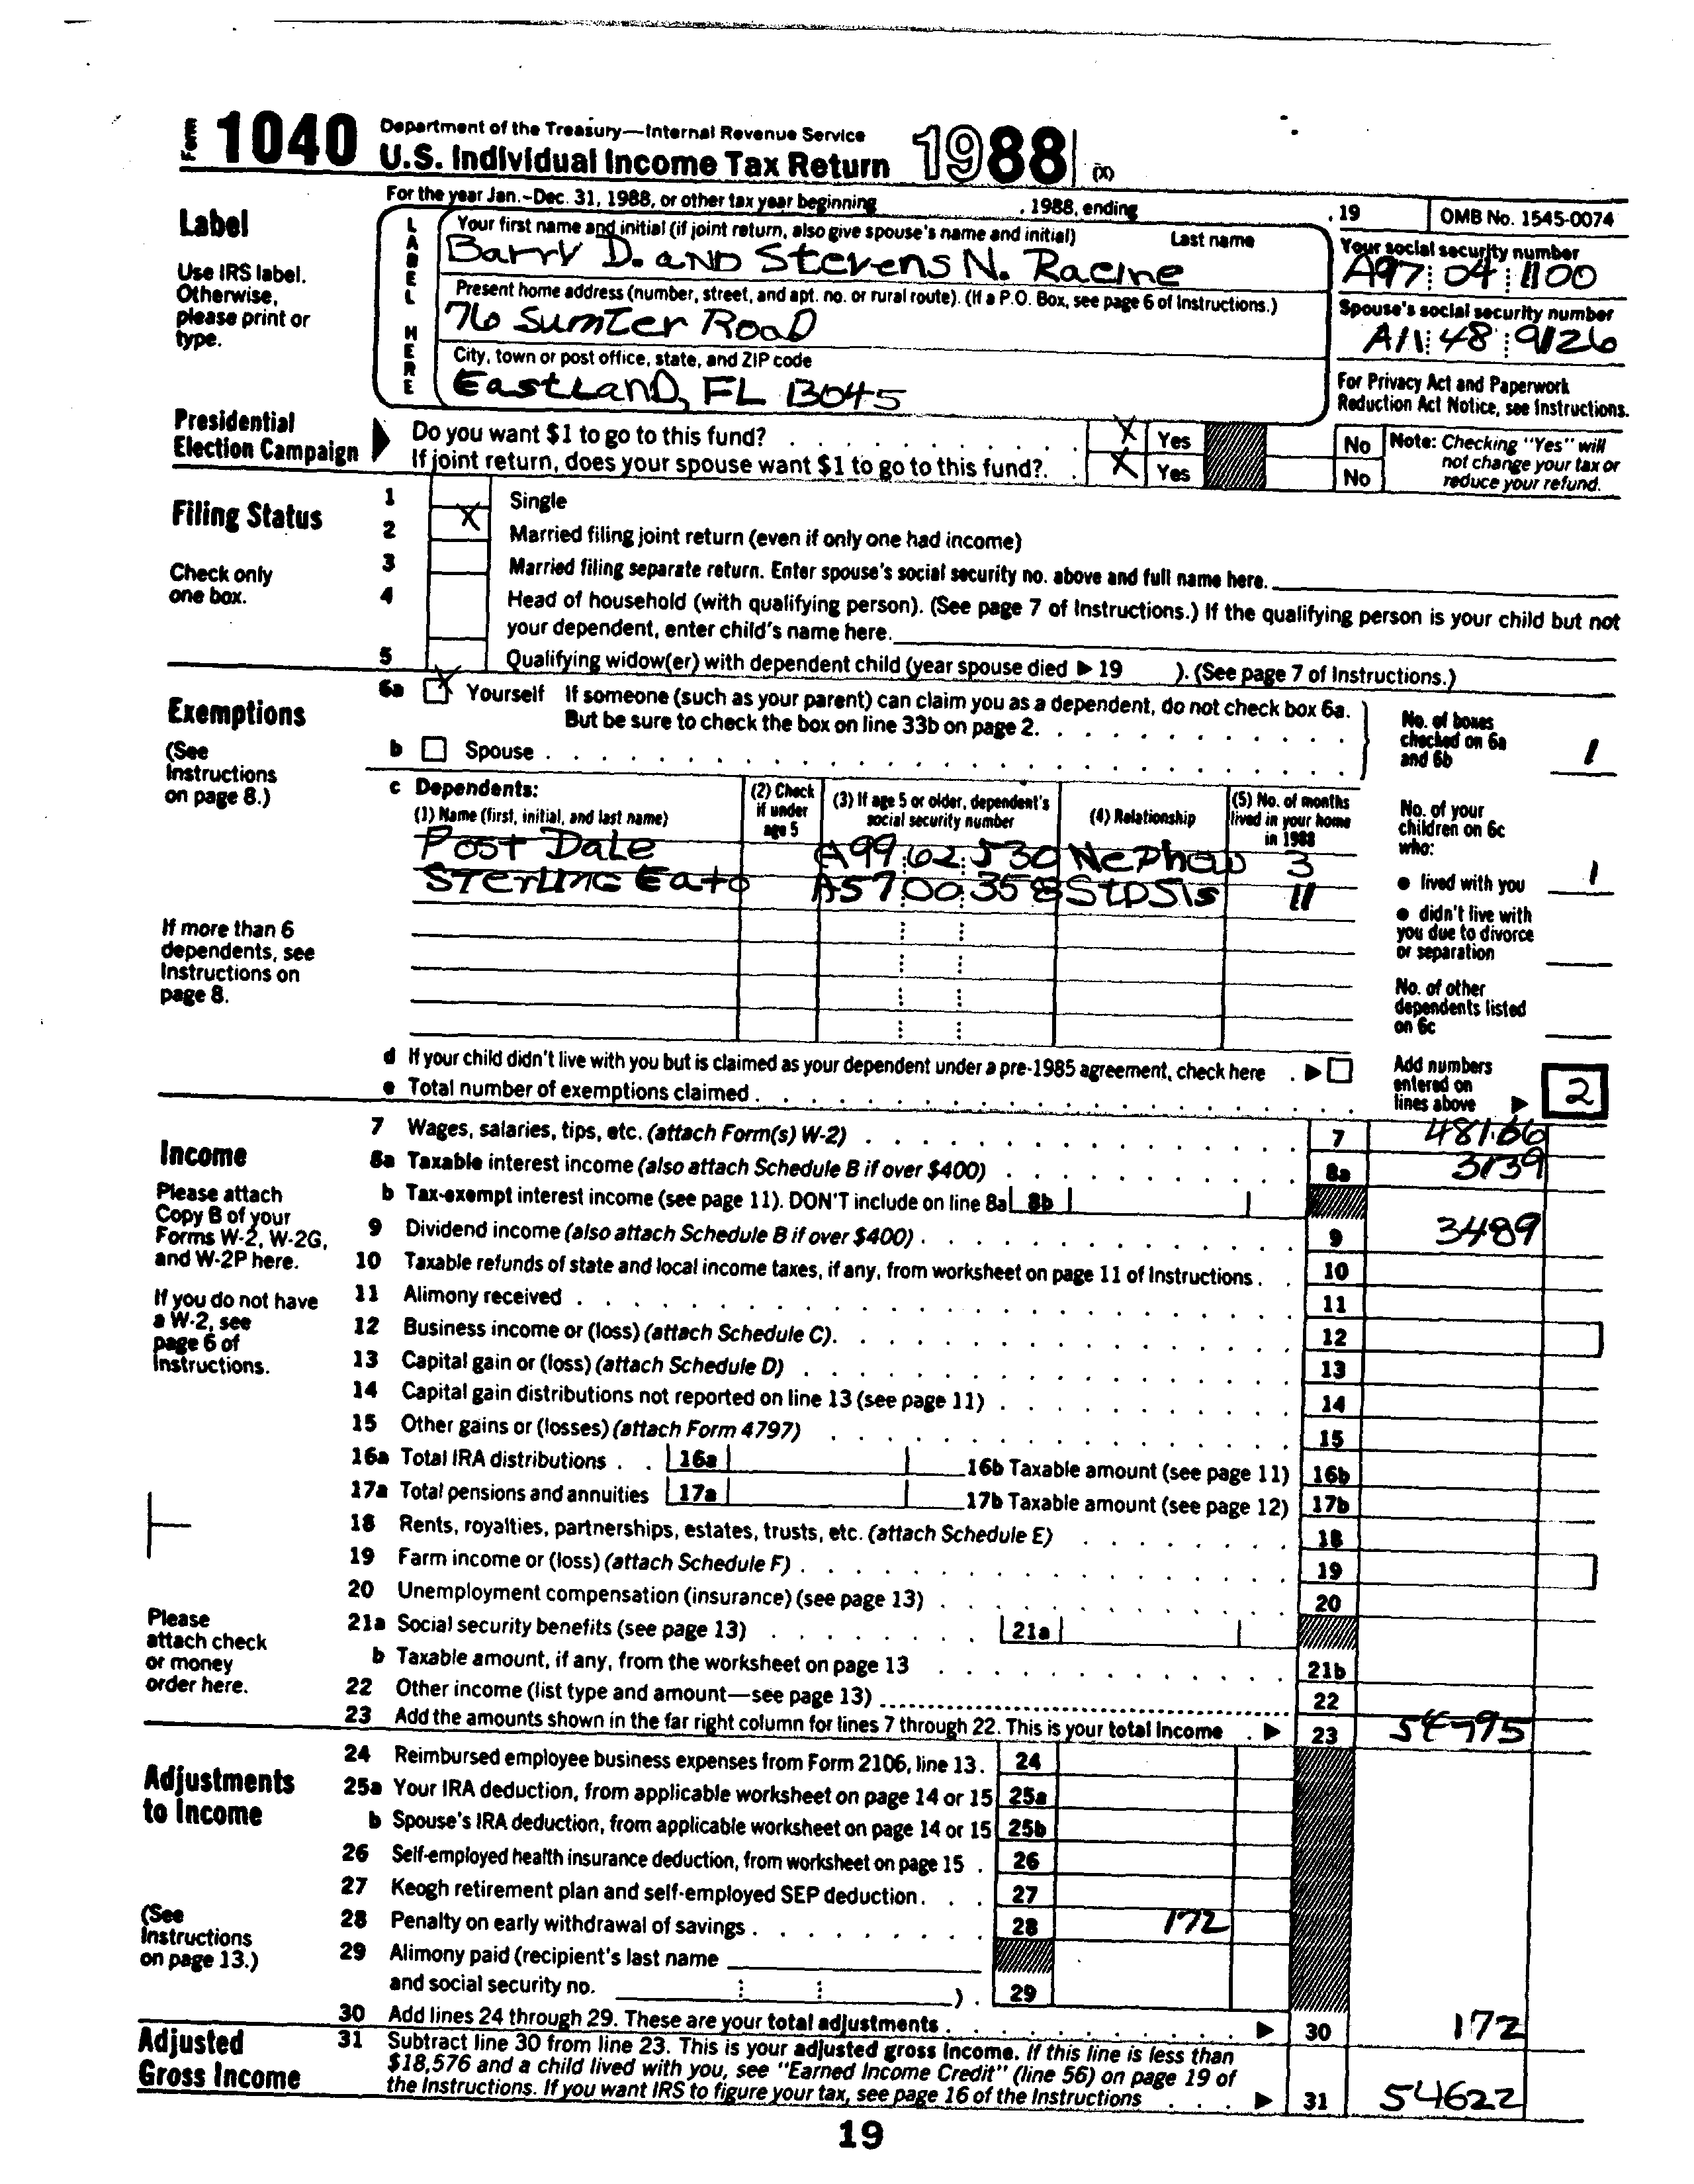 Form 1040 Department of the Treasury—Internal Revenue Service
U.S. Individual Income Tax Return 1988 (X)
For the year Jan.-Dec. 31, 1988, or other tax year beginning , 1988, ending , 19 OMB No. 1545-0074
Label
Use IRS label.
Otherwise,
please print or
type.
LABEL HERE
Your first name and initial (if joint return, also give spouse's name and initial) Last name
Barry D. AND Stevens N. Racine
Your social security number
A97 04 1100
Present home address (number, street, and apt. no. or rural route). (If a P.O. Box, see page 6 of Instructions.)
76 Sumter Road
Spouse's social security number
A11 48 9126
City, town or post office, state, and ZIP code
Eastland, FL 13045
For Privacy Act and Paperwork
Reduction Act Notice, see Instructions.
Presidential
Election Campaign
Do you want $1 to go to this fund? X Yes No
If joint return, does your spouse want $1 to go to this fund? X Yes No
Note: Checking "Yes" will
not change your tax or
reduce your refund.
Filing Status
Check only
one box.
1 Single
2 X Married filing joint return (even if only one had income)
3 Married filing separate return. Enter spouse's social security no. above and full name here.
4 Head of household (with qualifying person). (See page 7 of Instructions.) If the qualifying person is your child but not
your dependent, enter child's name here.
5 Qualifying widow(er) with dependent child (year spouse died ▶ 19 ). (See page 7 of Instructions.)
Exemptions
(See
Instructions
on page 8.)
6a X Yourself If someone (such as your parent) can claim you as a dependent, do not check box 6a.
But be sure to check the box on line 33b on page 2.
b Spouse
No. of boxes
checked on 6a
and 6b 1
c Dependents:
(1) Name (first, initial, and last name)
(2) Check
if under
age 5
(3) If age 5 or older, dependent's
social security number
(4) Relationship
(5) No. of months
lived in your home
in 1988
Post Dale A99 62 530 Nephew 3
Sterling Eato A57 00 358 StpSis 11
If more than 6
dependents, see
Instructions on
page 8.
No. of your
children on 6c
who:
● lived with you 1
● didn't live with
you due to divorce
or separation
No. of other
dependents listed
on 6c
d If your child didn't live with you but is claimed as your dependent under a pre-1985 agreement, check here ▶
e Total number of exemptions claimed
Add numbers
entered on
lines above ▶ 2
Income
Please attach
Copy B of your
Forms W-2, W-2G,
and W-2P here.
If you do not have
a W-2, see
page 6 of
Instructions.
Please
attach check
or money
order here.
7 Wages, salaries, tips, etc. (attach Form(s) W-2) 7 48166
8a Taxable interest income (also attach Schedule B if over $400) 8a 3139
b Tax-exempt interest income (see page 11). DON'T include on line 8a 8b
9 Dividend income (also attach Schedule B if over $400) 9 3489
10 Taxable refunds of state and local income taxes, if any, from worksheet on page 11 of Instructions 10
11 Alimony received 11
12 Business income or (loss) (attach Schedule C) 12
13 Capital gain or (loss) (attach Schedule D) 13
14 Capital gain distributions not reported on line 13 (see page 11) 14
15 Other gains or (losses) (attach Form 4797) 15
16a Total IRA distributions 16a 16b Taxable amount (see page 11) 16b
17a Total pensions and annuities 17a 17b Taxable amount (see page 12) 17b
18 Rents, royalties, partnerships, estates, trusts, etc. (attach Schedule E) 18
19 Farm income or (loss) (attach Schedule F) 19
20 Unemployment compensation (insurance) (see page 13) 20
21a Social security benefits (see page 13) 21a
b Taxable amount, if any, from the worksheet on page 13 21b
22 Other income (list type and amount—see page 13) 22
23 Add the amounts shown in the far right column for lines 7 through 22. This is your total income ▶ 23
Adjustments
to Income
(See
Instructions
on page 13.)
24 Reimbursed employee business expenses from Form 2106, line 13. 24
25a Your IRA deduction, from applicable worksheet on page 14 or 15 25a
b Spouse's IRA deduction, from applicable worksheet on page 14 or 15 25b
26 Self-employed health insurance deduction, from worksheet on page 15 26
27 Keogh retirement plan and self-employed SEP deduction 27
28 Penalty on early withdrawal of savings 28 172
29 Alimony paid (recipient's last name
and social security no. ) 29
30 Add lines 24 through 29. These are your total adjustments ▶ 30 172
Adjusted
Gross Income
31 Subtract line 30 from line 23. This is your adjusted gross income. If this line is less than
$18,576 and a child lived with you, see "Earned Income Credit" (line 56) on page 19 of
the Instructions. If you want IRS to figure your tax, see page 16 of the Instructions ▶ 31 54622
19